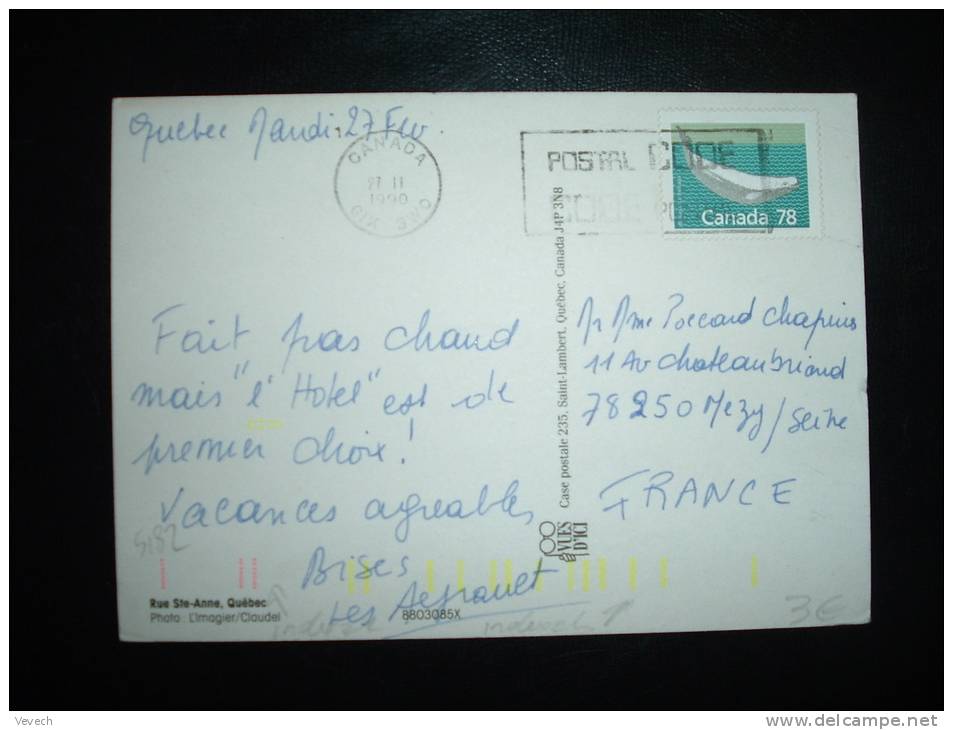 Quebec Mardi 27 Fev.
CANADA
27 II
1990
G1K 3W0
POSTAL CODE
CODE POSTAL
Canada 78
Fait pas chaud
mais "l'Hotel" est de
premier choix!
Vacances agréables
Bises
Les
Mr Mme Poccard Chapuis
11 Av Chateaubriand
78250 Mezy/Seine
FRANCE
Case postale 235, Saint-Lambert, Québec, Canada J4P 3N8
VUES
D'ICI
5182
Rue Ste-Anne, Québec
Photo: L'Imagier/Claudel
8803085X
3€
Vevech
www.delcampe.net